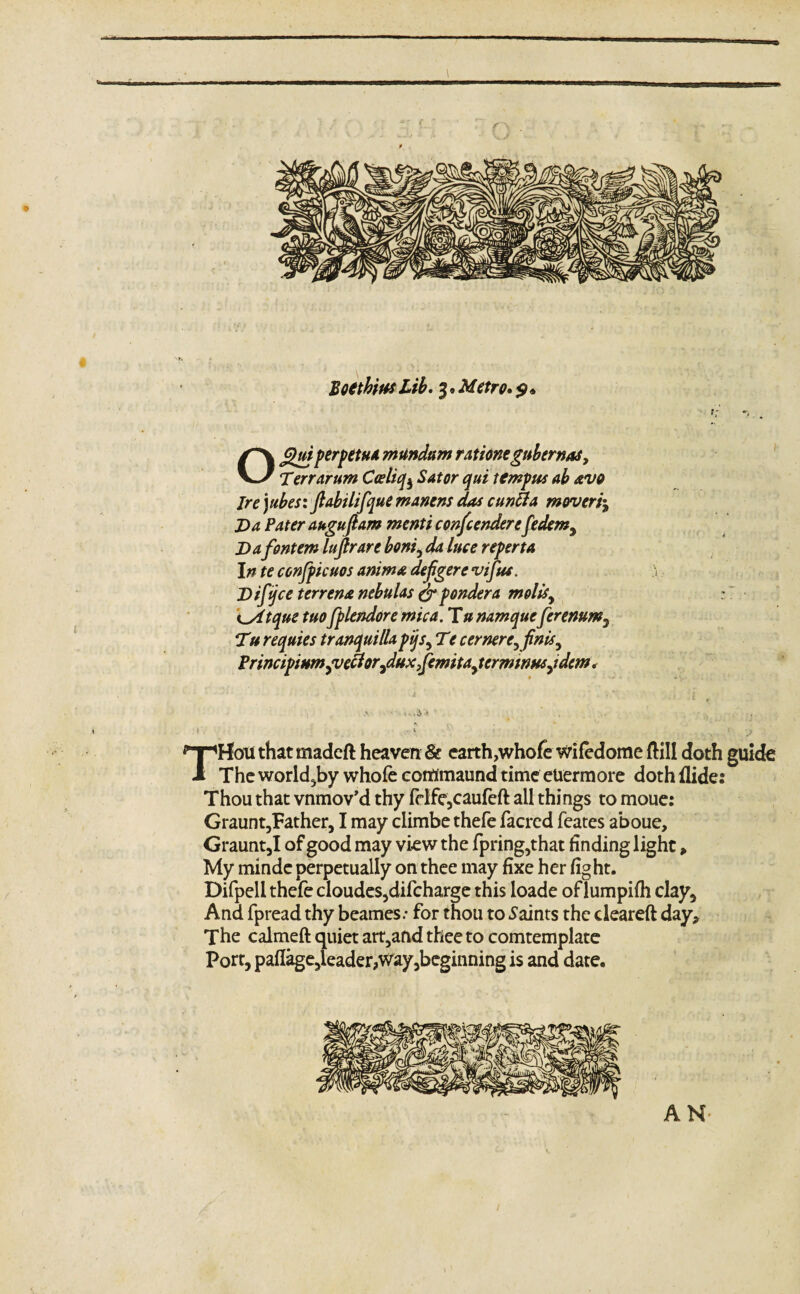 Boëthius Lib. 3. Metro. 9.
O Qui perpetua mundum ratione gubernas,
Terrarum Cœliq; Sator qui tempus ab ævo
Ire jubes: ſtabiliſque manens das cuncta moveri;
Da Pater auguſtam menti conſcendere ſedem,
Da fontem luſtrare boni, da luce reperta
In te conſpicuos animæ defigere viſus.
Diſijce terrenæ nebulas & pondera molis,
Atque tuo ſplendore mica. Tu namque ſerenum,
Tu requies tranquilla pijs, Te cernere, finis,
Principium, vector, dux, ſemita, terminus, idem.
THou that madeſt heaven & earth, whoſe wiſedome ſtill doth guide
The world, by whoſe commaund time euermore doth ſlide:
Thou that vnmov'd thy ſelfe, cauſeſt all things to moue:
Graunt, Father, I may climbe theſe ſacred ſeates aboue,
Graunt, I of good may view the ſpring, that finding light,
My minde perpetually on thee may fixe her ſight.
Diſpell theſe cloudes, diſcharge this loade of lumpiſh clay,
And ſpread thy beames: for thou to Saints the cleareſt day,
The calmeſt quiet art, and thee to comtemplate
Port, paſſage, leader, way, beginning is and date.
AN